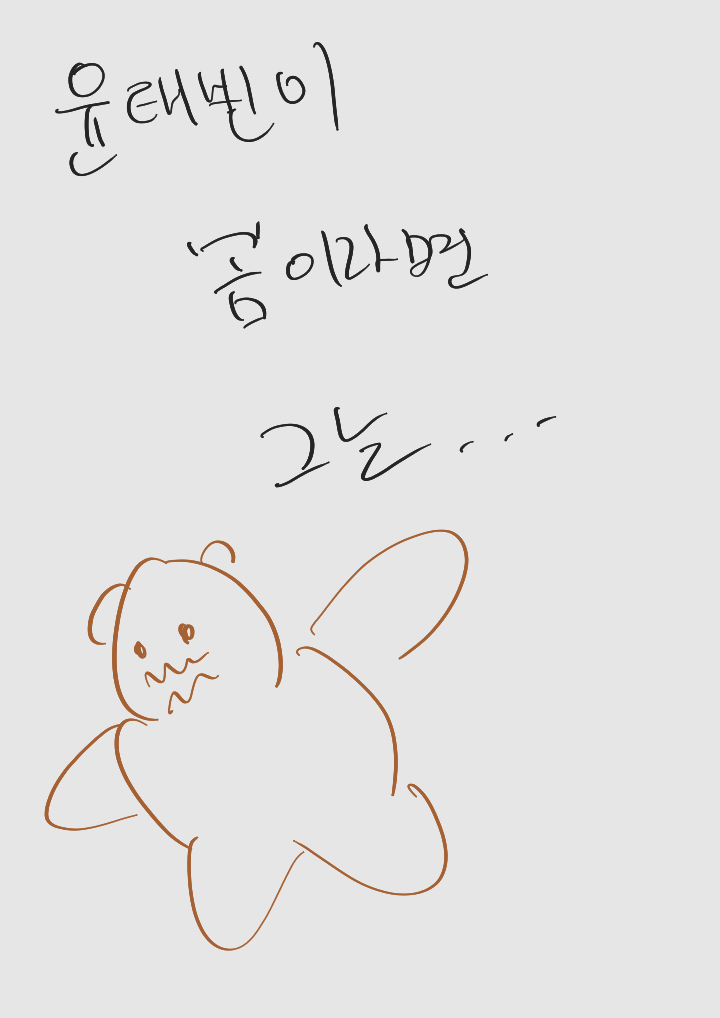 윤태빈이
곰이라면
그는...